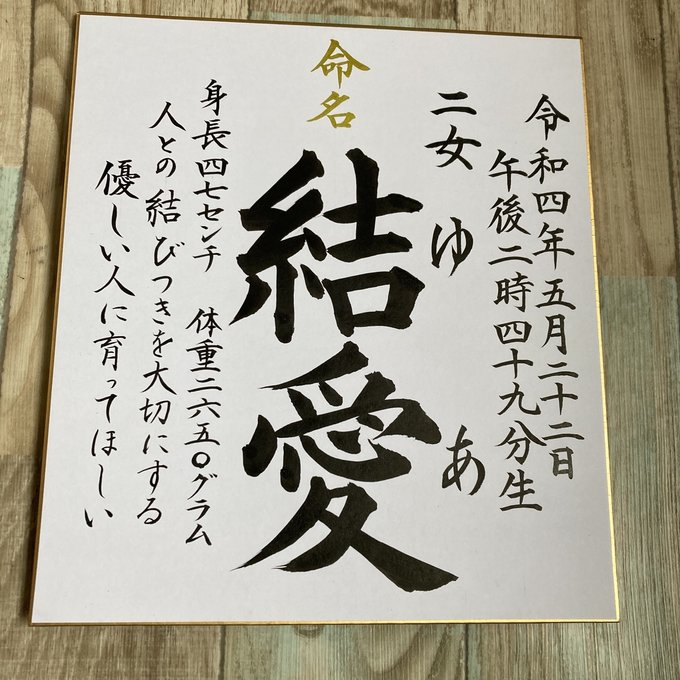 令和四年五月二十二日
午後二時四十九分生
二女
ゆあ
命名
結愛
身長四七センチ 体重二六五〇グラム
人との結びつきを大切にする
優しい人に育ってほしい